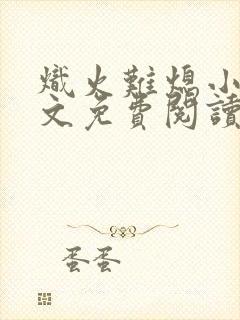 熾火難熄小
文免費閱讀
蛋蛋